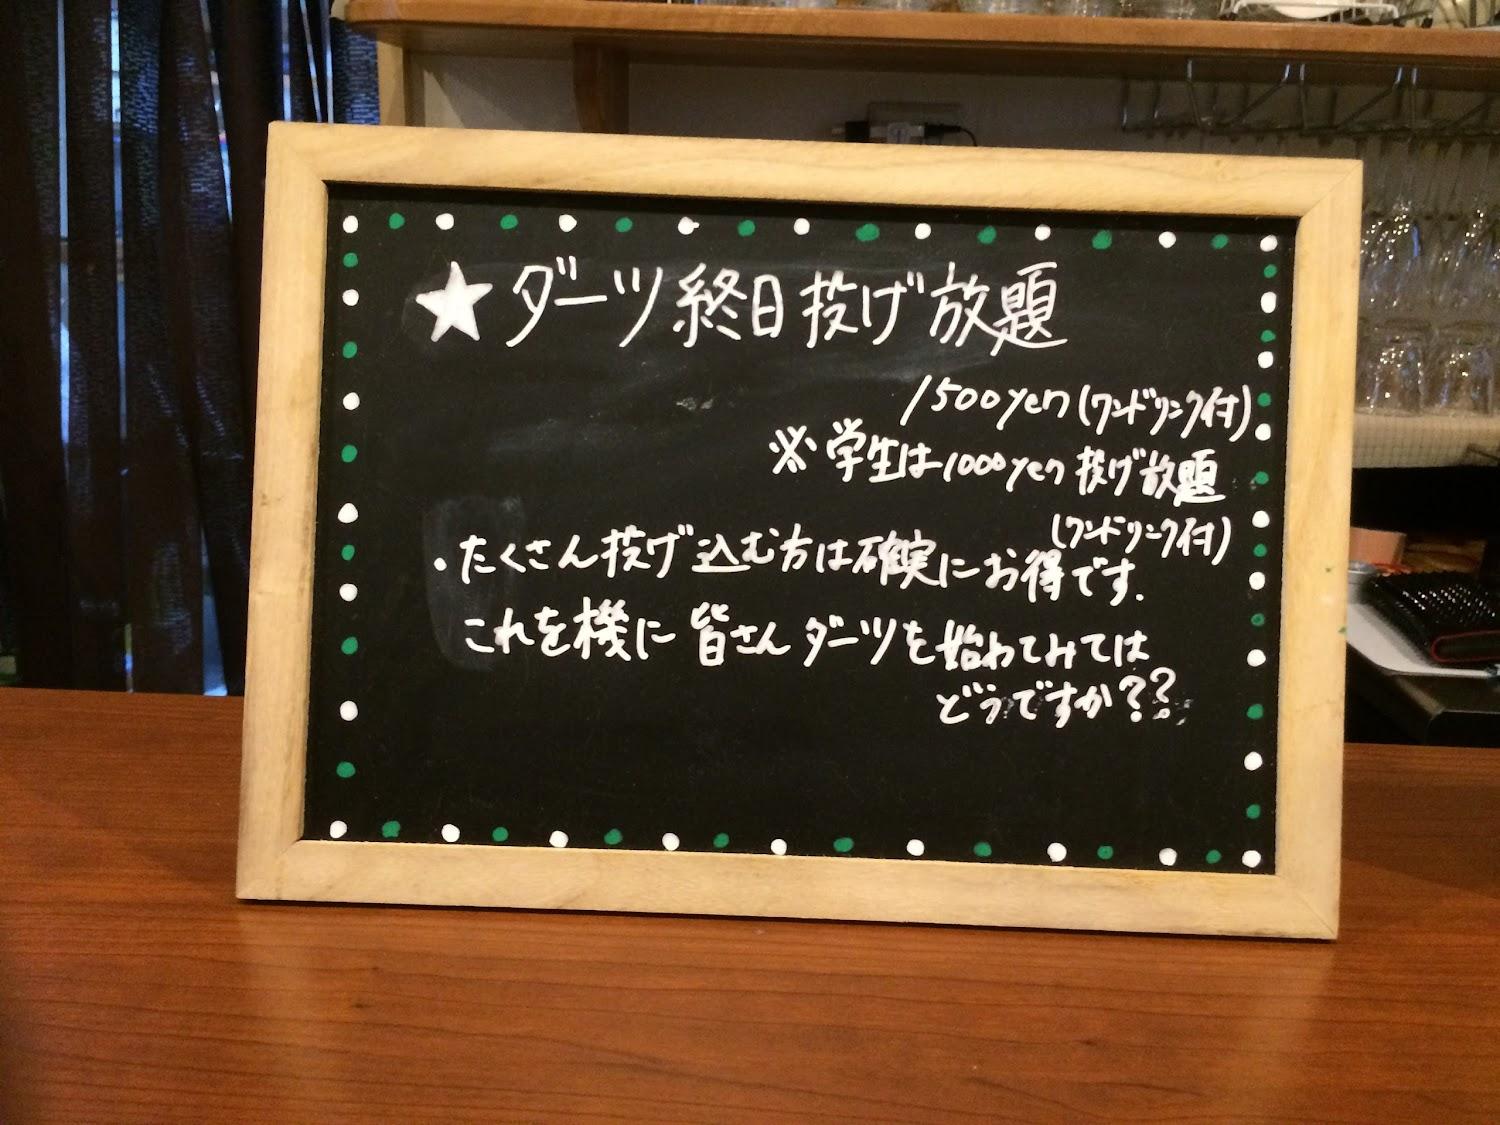 ★ダーツ終日投げ放題
1500yen(ワンドリンク付)
※学生は1000yen 投げ放題
(ワンドリンク付)
・たくさん投げ込む方は確実にお得です.
これを機に皆さんダーツを始めてみては
どうですか??